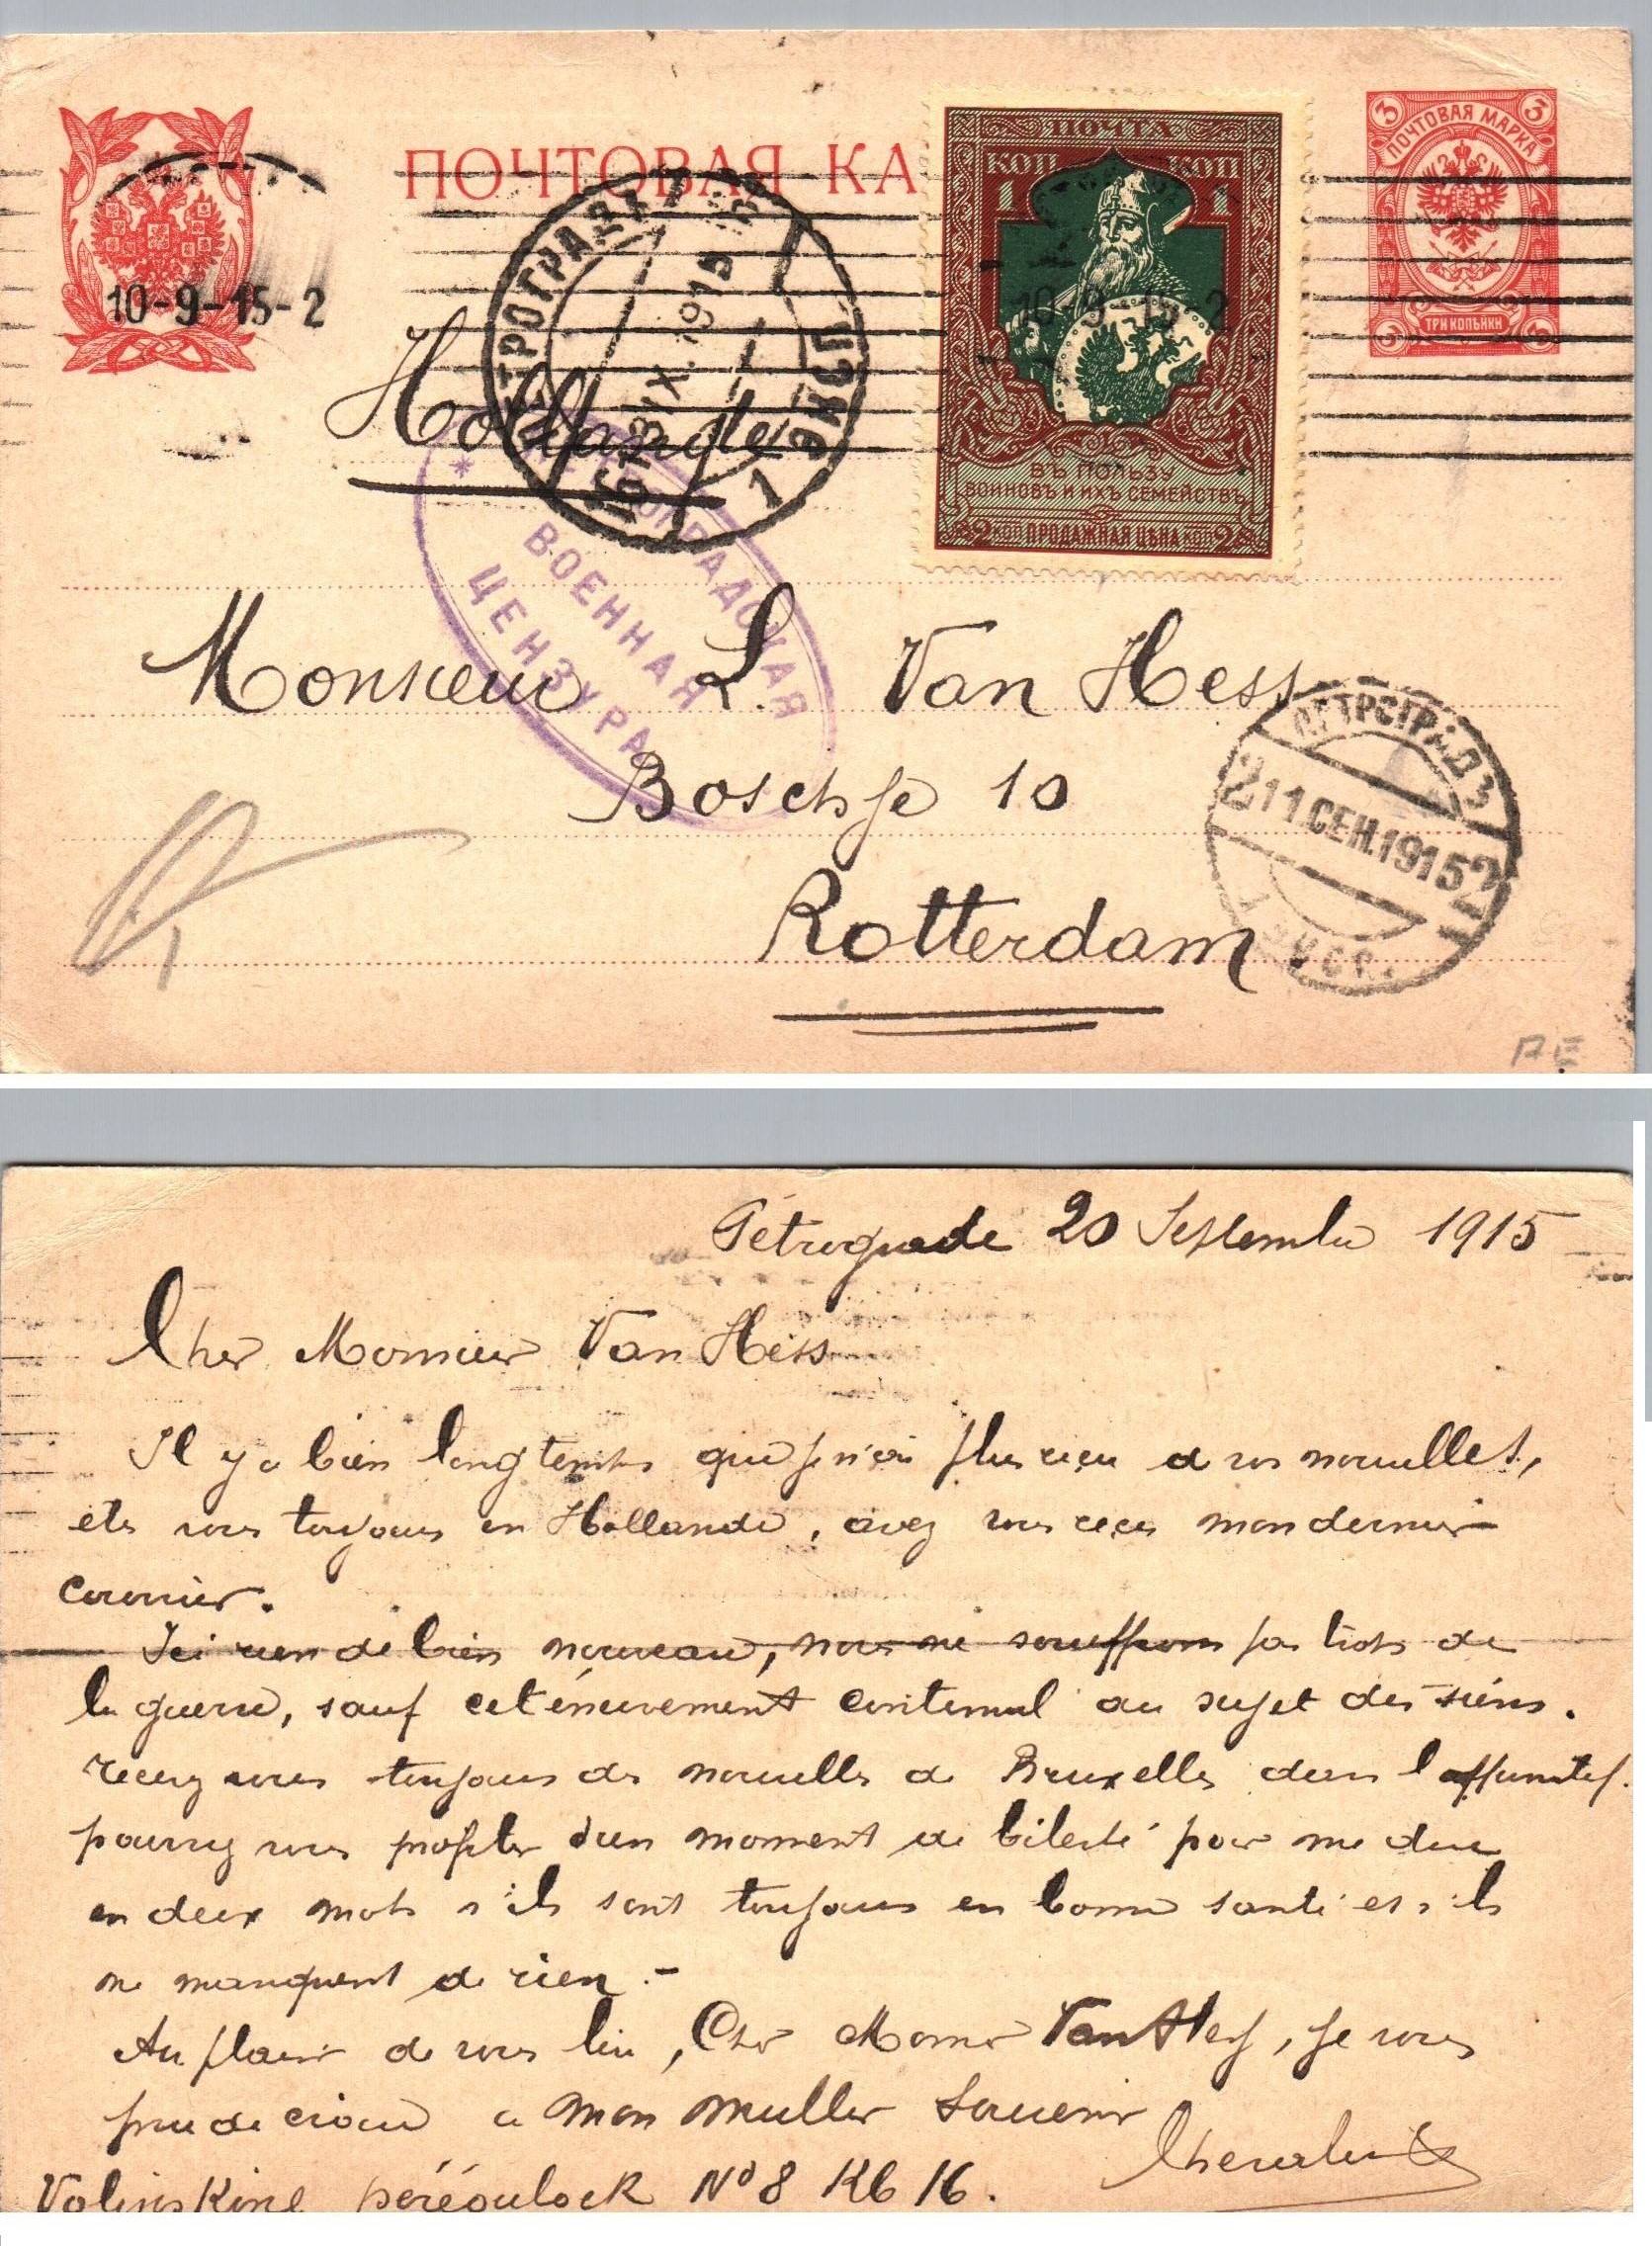 ПОЧТОВАЯ КА
ПОЧТОВАЯ МАРКА
3 3
ТРИ КОПѢЙКИ
3 3
ПОЧТА
КОП КОП
1 1
ВЪ ПОЛЬЗУ
ВОИНОВЪ И ИХЪ СЕМЕЙСТВЪ
2 КОП ПРОДАЖНАЯ ЦѢНА КОП 2
10-9-15-2
10-9-15-2
ПЕТРОГРАДЪ
1 ЭКСП.
IX. 1915
Hollande
ПЕТРОГРАДСКАЯ
ВОЕННАЯ
ЦЕНЗУРА
Monsieur L. Van Hess
Boschje 10
Rotterdam.
ПЕТРОГРАД
2 11 СЕН. 1915 2
AE
Pétrograde 20 Septembre 1915
Cher Monsieur Van Hess
Il y a bien longtemps que je n'ai plus reçu de vos nouvelles,
ets vous toujours en Hollande, avez vous reçu mon dernier
courrier.
Ici rien de bien nouveau, nous ne souffrons pas trop de
la guerre, sauf cet énervement continuel au sujet des siens.
recevez vous toujours des nouvelles de Bruxelles dans l'affirmatif.
pourrez vous profiter d'un moment de liberté pour me dire
en deux mots s'ils sont toujours en bonne santé et s'ils
ne manquent de rien.-
Au plaisir de vous lire, Cher Monsr Van Hess, je vous
prie de croire a mon meuller Souvenir
Volinskine péréoulock No 8 Kb 16.